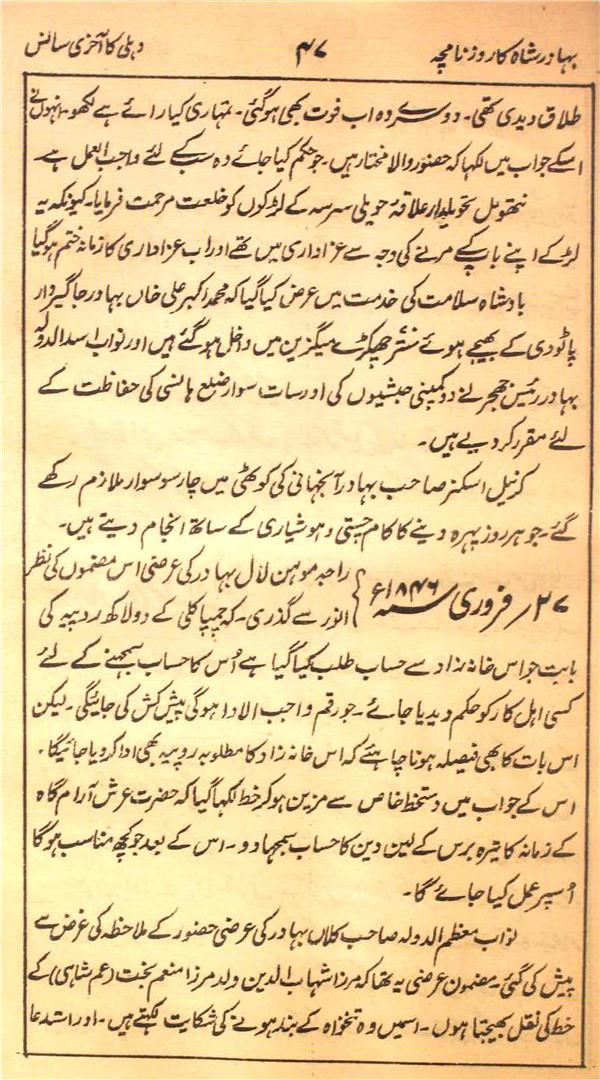 بہادر شاہ کا روزنامچہ ۴۷ دہلی کا آخری سانس
طلاق دیدی تھی۔ دوسرے وہ اب فوت بھی ہوگئی۔ تمہاری کیا رائے ہے لکھو۔ انہوں نے
اسکے جواب میں لکھا کہ حضور والا مختار ہیں۔ جو حکم کیا جائے وہ سب کے لئے واجب العمل ہے۔
نتھومل تحویلدار علاقۂ حویلی سرسہ کے لڑکوں کو خلعت مرحمت فرمایا۔ کیونکہ یہ
لڑکے اپنے باپ کے مرنے کی وجہ سے عزاداری میں تھے اور اب عزاداری کا زمانہ ختم ہوگیا
بادشاہ سلامت کی خدمت میں عرض کیا گیا کہ محمد اکبر علی خاں بہادر جاگیردار
پاٹودی کے بھیجے ہوئے ستّر چھکڑے میگزین میں داخل ہوگئے ہیں اور نواب اسد الدولہ
بہادر رئیس جھجر نے دو کمپنی حبشیوں کی اور سات سوار ضلع ہانسی کی حفاظت کے
لئے مقرر کردیے ہیں۔
کرنیل اسکنر صاحب بہادر آنجہانی کی کوٹھی میں چار سو سوار ملازم رکھے
گئے۔ جو ہر روز پہرہ دینے کا کام چستی و ہوشیاری کے ساتھ انجام دیتے ہیں۔
۲۷ / فروری سنہ ۱۸۴۶ء } راجہ موہن لال بہادر کی عرضی اس مضمون کی نظر
انور سے گذری۔ کہ چمپا کلی کے دو لاکھ روپیہ کی
بابت جو اس خانہ زاد سے حساب طلب کیا گیا ہے اُس کا حساب سمجھنے کے لئے
کسی اہل کار کو حکم دیدیا جائے۔ جو رقم واجب الادا ہوگی پیش کش کی جائیگی۔ لیکن
اس بات کا بھی فیصلہ ہونا چاہئے کہ اس خانہ زاد کا مطلوبہ روپیہ بھی ادا کردیا جائیگا۔
اس کے جواب میں دستخط خاص سے مزین ہوکر خط لکھا گیا کہ حضرت عرش آرام گاہ
کے زمانہ کا تیرہ برس کے لین دین کا حساب سمجھا دو۔ اس کے بعد جو کچھ مناسب ہوگا
اُسپر عمل کیا جائے گا۔
نواب معظم الدولہ صاحب کلاں بہادر کی عرضی حضور کے ملاحظہ کی غرض سے
پیش کی گئی۔ مضمون عرضی یہ تھا کہ مرزا شہاب الدین ولد مرزا منعم بخت (عم شاہی) کے
خط کی نقل بھیجتا ہوں۔ اسمیں وہ تنخواہ کے بند ہونے کی شکایت لکھتے ہیں۔ اور استدعا